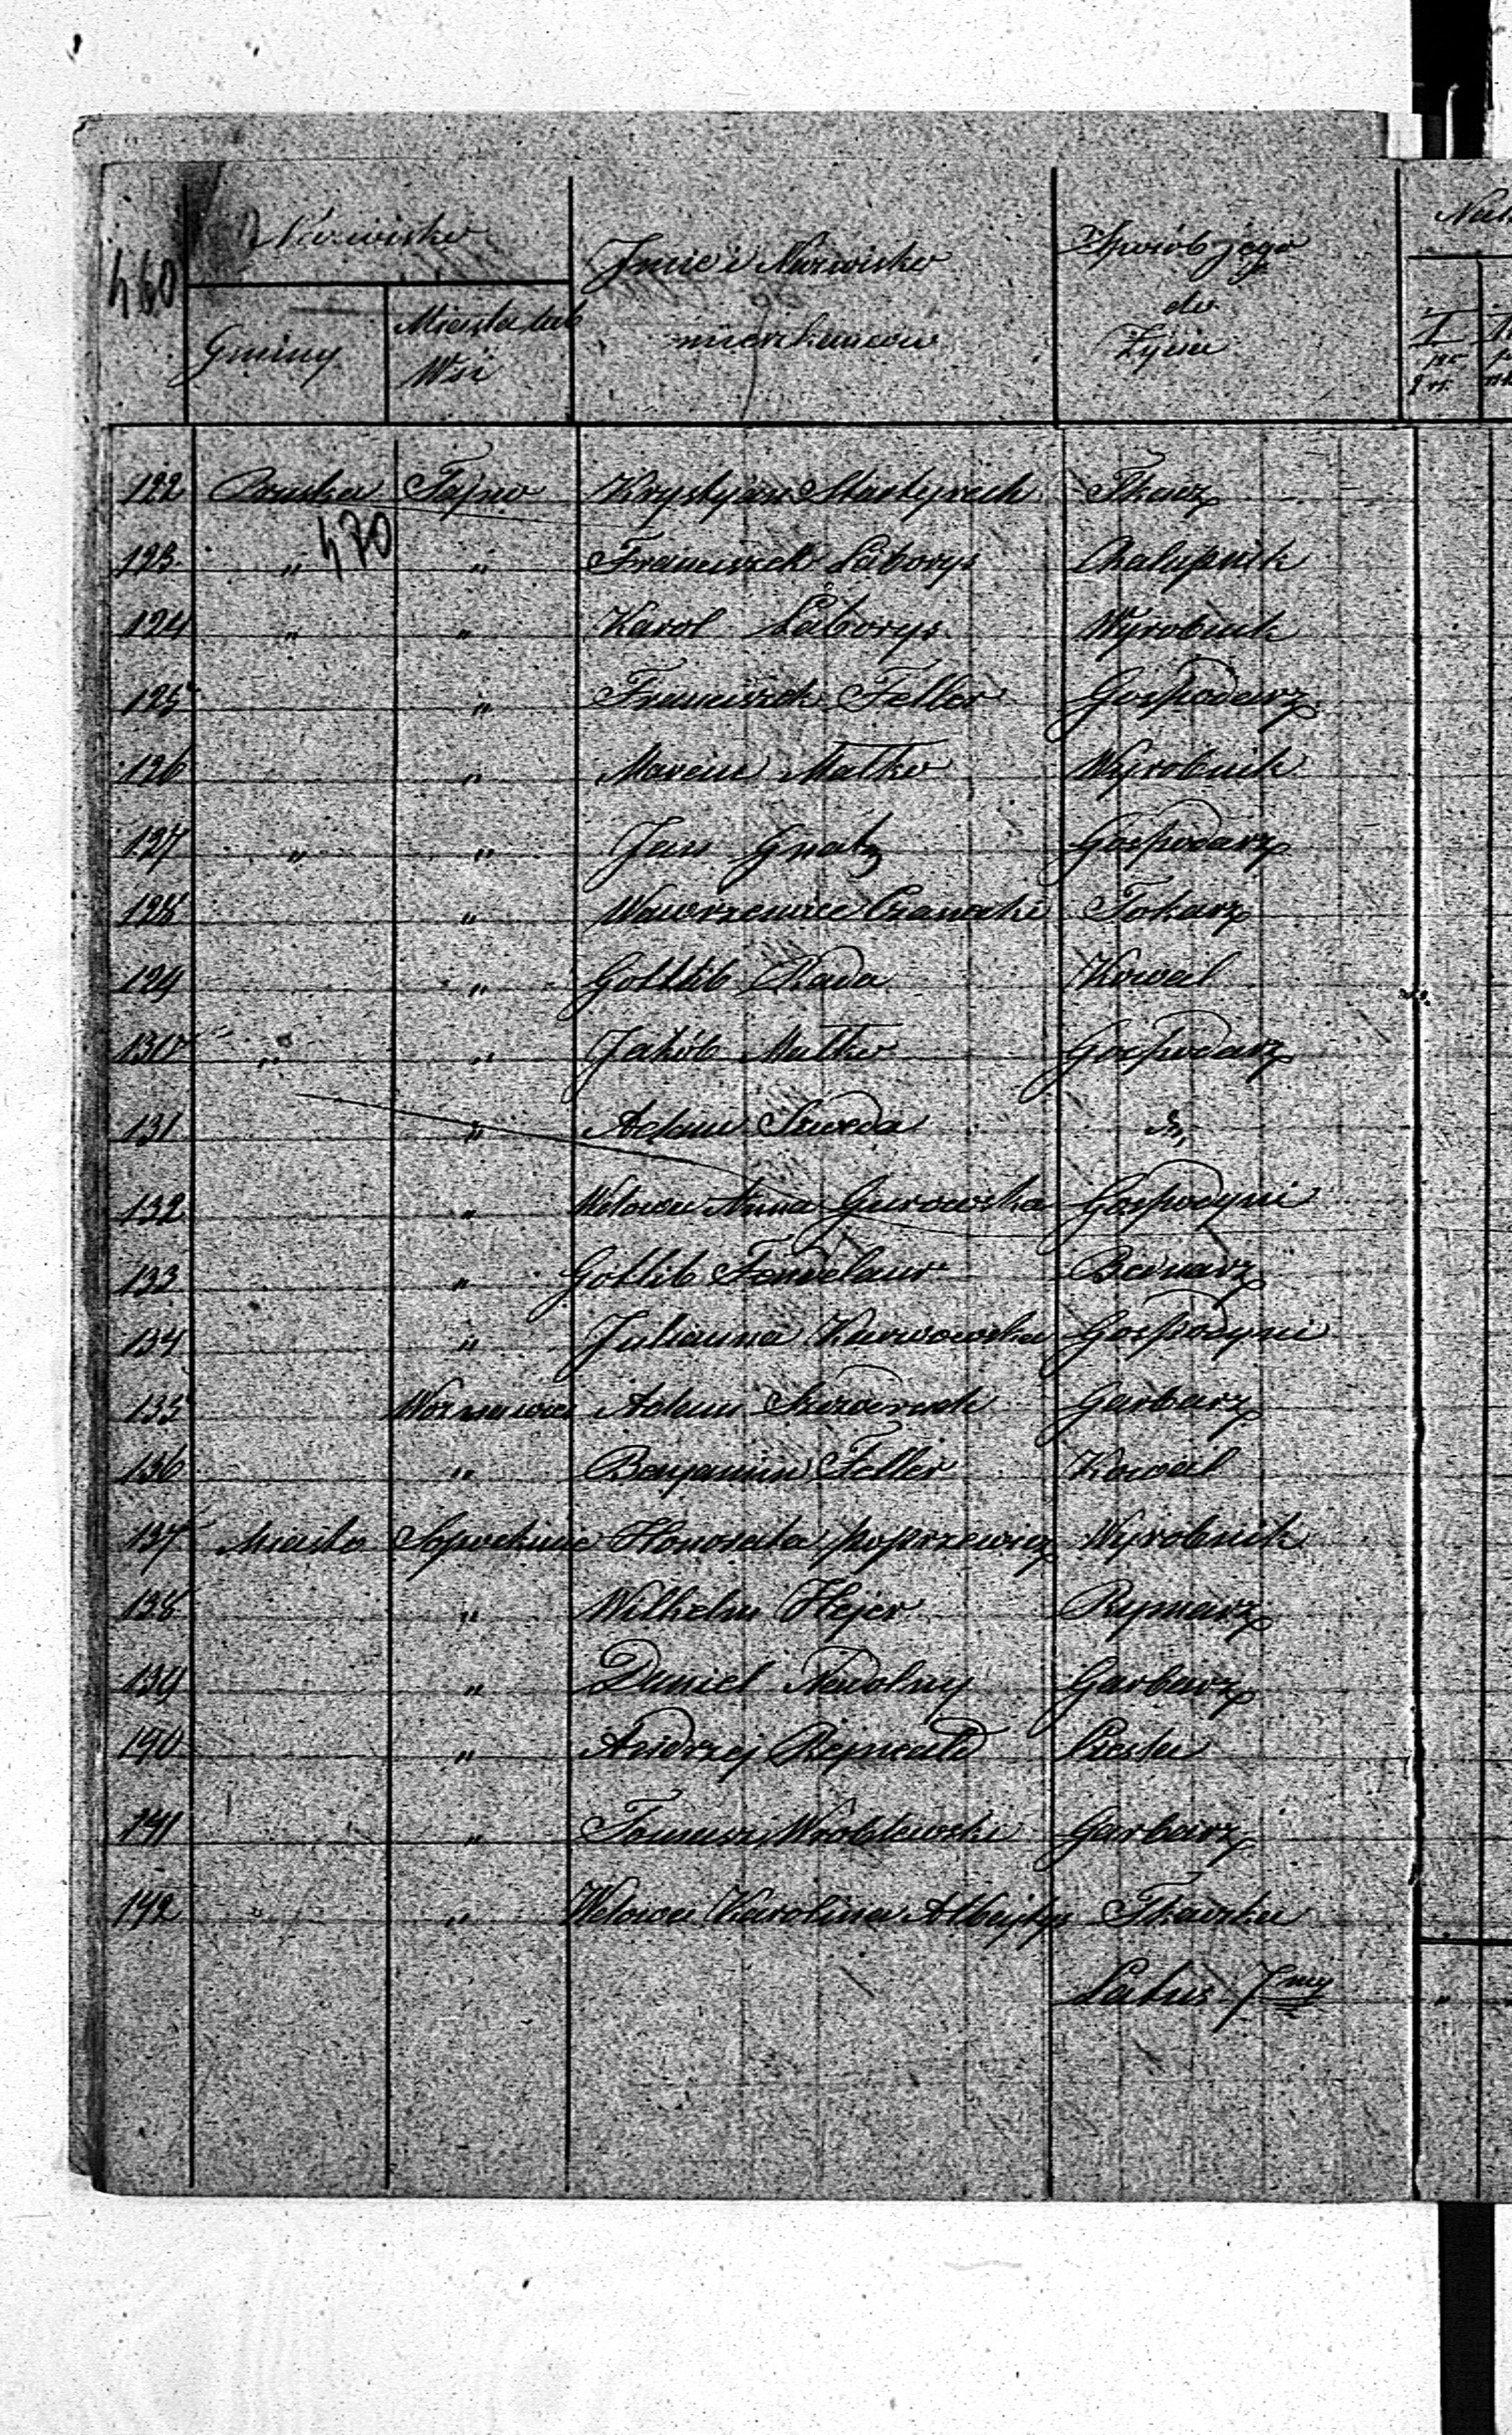 460
Nazwisko
Gminy
Miasta lub
Wsi
Imie i Nazwisko
mieszkancow
Sposób jego
do
Życia
122 Tajno Krystyan Tkacz
470
123 " " Franciszek Laborys Chałupnik
124 " " Karol Laborys Wyrobnik
125 " Franciszek Feller Gospodarz
126 " Marcin Matko Wyrobnik
127 " " Jan Gnatz Gospodarz
128 " Wawrzeniec Czarnecki Tokarz
129 " Gottlib Rada Kowal
130 " " Jakób Matko Gospodarz
131 " Adam Szweda
132 " Wdowa Anna Gurowska Gospodyni
133 " Gotlib Bednarz
134 " Julianna Karwowska Gospodyni
135 Adam Garbarz
136 " Benjamin Feller Kowal
137 Miasto Sopockinie Honorata Poprzewicz Wyrobnik
138 " Wilhelm Hejer Rymarz
139 " Daniel Nadolny Garbarz
140 " Andrzej Rejnald Cieśla
141 " Tomasz Wroblewski Garbarz
142 " " Wdowa Karolina Tkaczka
Latus 7my "